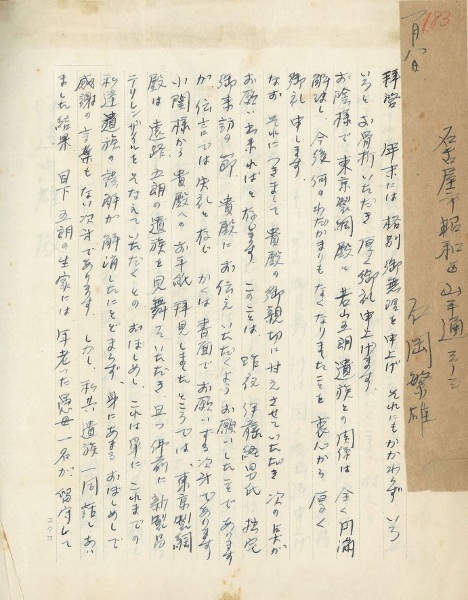 183
一月八日
名古屋市昭和区山手通
石岡繁雄
拝啓 年末には格別御無理を申上げ それにもかかわらず いろ
いろとお骨折いただき 厚く御礼申上げます。
お陰様で東京製綱殿と若山五朗遺族との関係は全く円満
解決し 今後何のわだかまりもなくなりましたことを衷心から厚く
御礼申します。
なお それにつきまして貴殿の御親切に甘えさせていただき 次のことが
お願い出来ればと存じます。このことは、昨夜 伊藤経男氏 拙宅
御来訪の節 貴殿にお伝えいただくようお願いしたことであります
が 伝言では失礼と存じ かくは書面でお願いする次第であります
小関様から貴殿へのお手紙拝見しましたところでは、東京製綱
殿は遠路五朗の遺族を見舞っていただき、且つ佛前に新製品
テリレンザイルをそなえていただくとのおはなし、これは単にこれまでの
私達遺族の誤解が解消したにとどまらず、身にあまるおはなしで
感謝の言葉もない次第であります。しかし、私共遺族一同話しあい
ました結果 目下五朗の生家には 年老った愚母一名が留守して
コクヨ